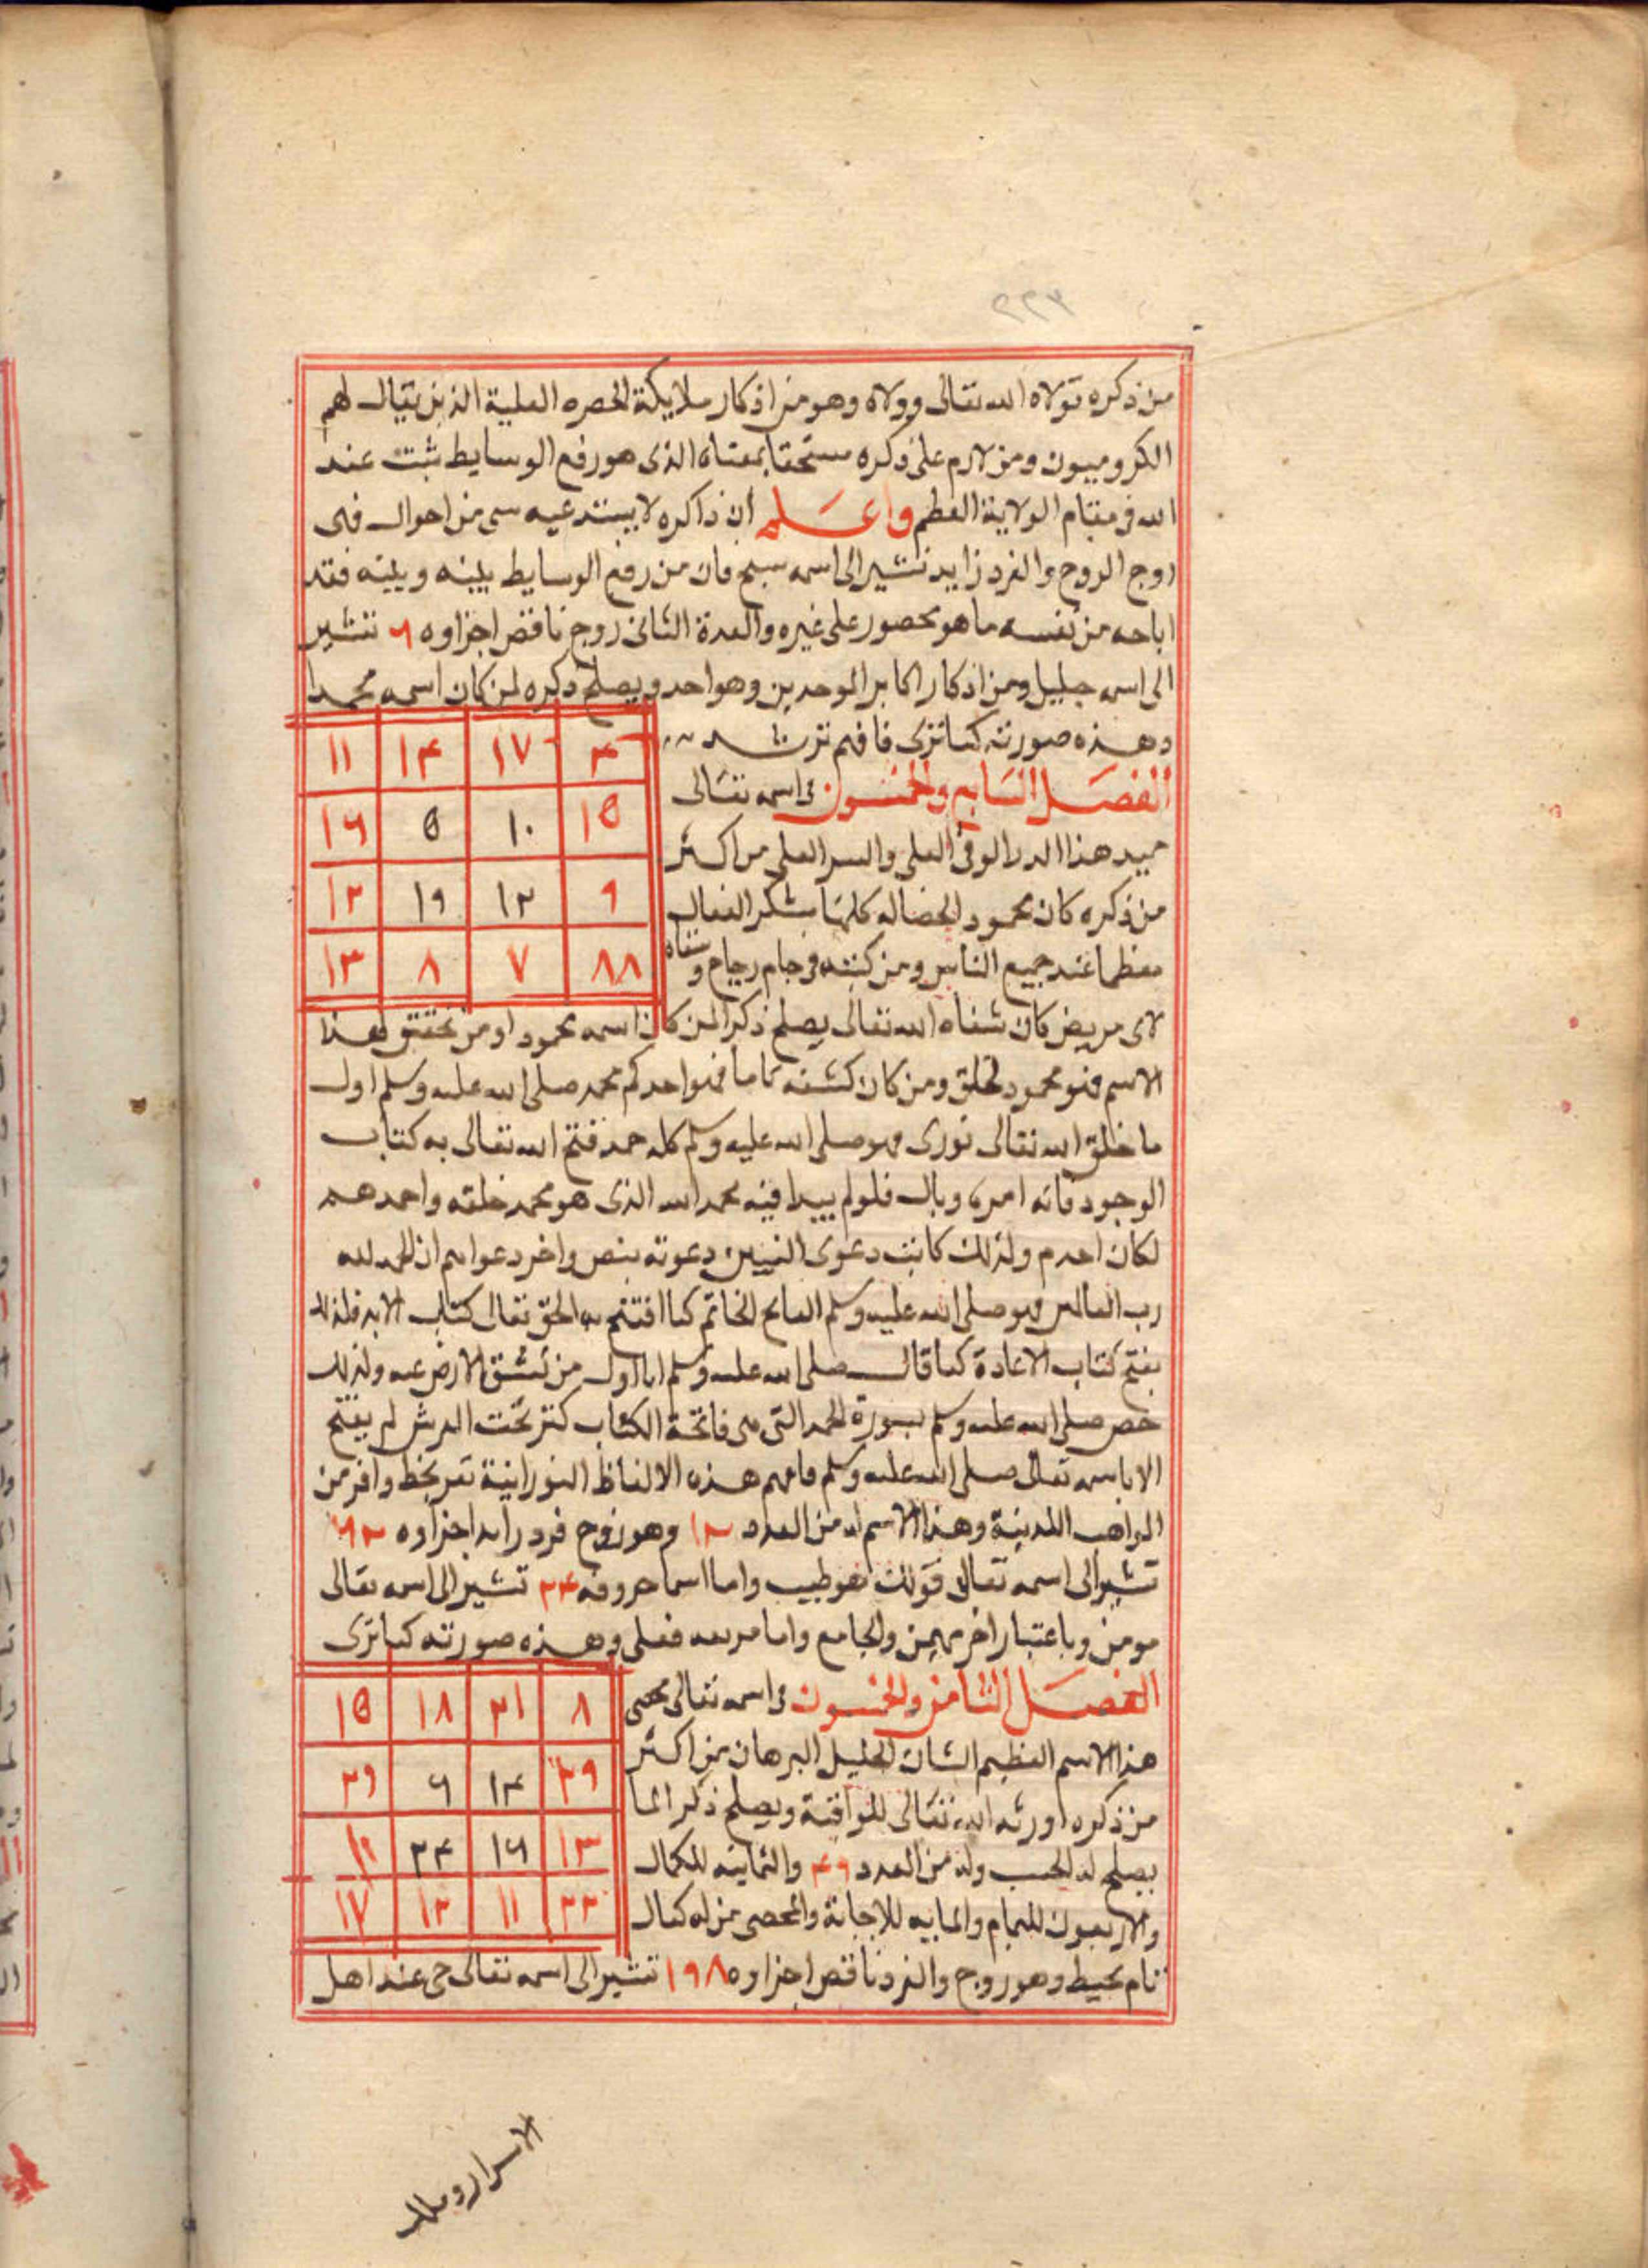 ٢٢٣
من ذكره تولاه الله تعالى وولاه وهو من اذكار ملايكة الحضره العلية الذين يقال لهم
الكروبيون ومن لازم على ذكره مستحقا بمعناه الذى هو رفع الوسايط ثبت عند
الله فى مقام الولاية العظم واعلم أن ذاكره لا عليه من احوال فهى
زوج الزوج والفرد زايد تشير الى اسمه سبح فان من رفع الوسايط بينه وبينه فقد
اباحه من نفسه ما هو محصور على غيره والعدة الثانى زوج ناقص اجزاوه ٦ تشير
الى اسمه جليل ومن اذكار اكابر الموحدين وهو احد ويصلح ذكره لمن كان اسمه محمدا
وهذه صورته كما ترى فافهم ترشد
٤ ١٧ ١٤ ١١
١٥ ١٠ ٥ ١٦
٩ ١٢ ١٩ ١٢
٨٨ ٧ ٨ ١٣
الفصل السابع والخمسون فى اسمه تعالى
حميد هذا الدر العلى والسر العلى من اكثر
من ذكره كان محمود الخصاله كلها بشكر الفعال
معظما عند جميع الناس ومن كتبه فى جام زجاج وسقاه
لاى مريض كان شفاه الله تعالى يصلح ذكرا لمن كان اسمه محمود او من تحقق بهذا
الاسم فهو محمود لخلق ومن كان كشفه تاما فهو احدكم محمد صلى الله عليه وسلم اول
ما خلق الله تعالى نورى فهو صلى الله عليه وسلم كله حمد فتح الله تعالى به كتاب
الوجود فانه امرى وبال فلولم يبدا فيه بحمد الله الذى هو محمد خلقه واحمدهم
لكان اجدم ولذلك كانت دعوى النبيين دعوته بنص واخر دعواهم ان الحمد لله
رب العالمين فهو صلى الله عليه وسلم الفاتح الخاتم كما افتتح به الحق تعالى كتاب الابد فلذلك
يفتح كتاب الاعادة كما قال صلى الله عليه وسلم انا اول من تنشق الارض عنه ولذلك
خص صلى الله عليه وسلم بسورة الحمد التى هى فاتحة الكتاب كنز تحت العرش لم يفتح
الا باسمه تعالى صلى الله عليه وسلم فافهم هذه الالفاظ النورانية تفز بحظ وافر من
المواهب اللدنية وهذا الاسم له من العدد ١٢ وهو زوج فرد زايد اجزاوه ٩٢
تشير الى اسمه تعالى قولك هو طيب واما اسما حروفه ٢٤ تشير الى اسمه تعالى
مومن وباعتبار اخر مهيمن والجامع واما مربعه فعلى وهذه صورته كما ترى
الفصل الثامن والخمسون فى اسمه تعالى محصى
٨ ٢١ ١٨ ١٥
٢٩ ١٤ ٦ ٢٩
١٣ ١٦ ٢٤ ١١
٢٢ ١١ ١٢ ١٧
هذا الاسم العظيم الشان الجليل البرهان من اكثر
من ذكره اورثه الله تعالى المراقبة ويصلح ذكرا لما
يصلح له الحسب وله من العدد ٤٩ والثمانيه للكمال
والاربعون للتمام والمايه للاجابة والمحصى من له كمال
تام محيط وهو زوج والفرد ناقص اجزاوه ١٩٨ تشير الى اسمه تعالى حى عند اهل
الاسرار